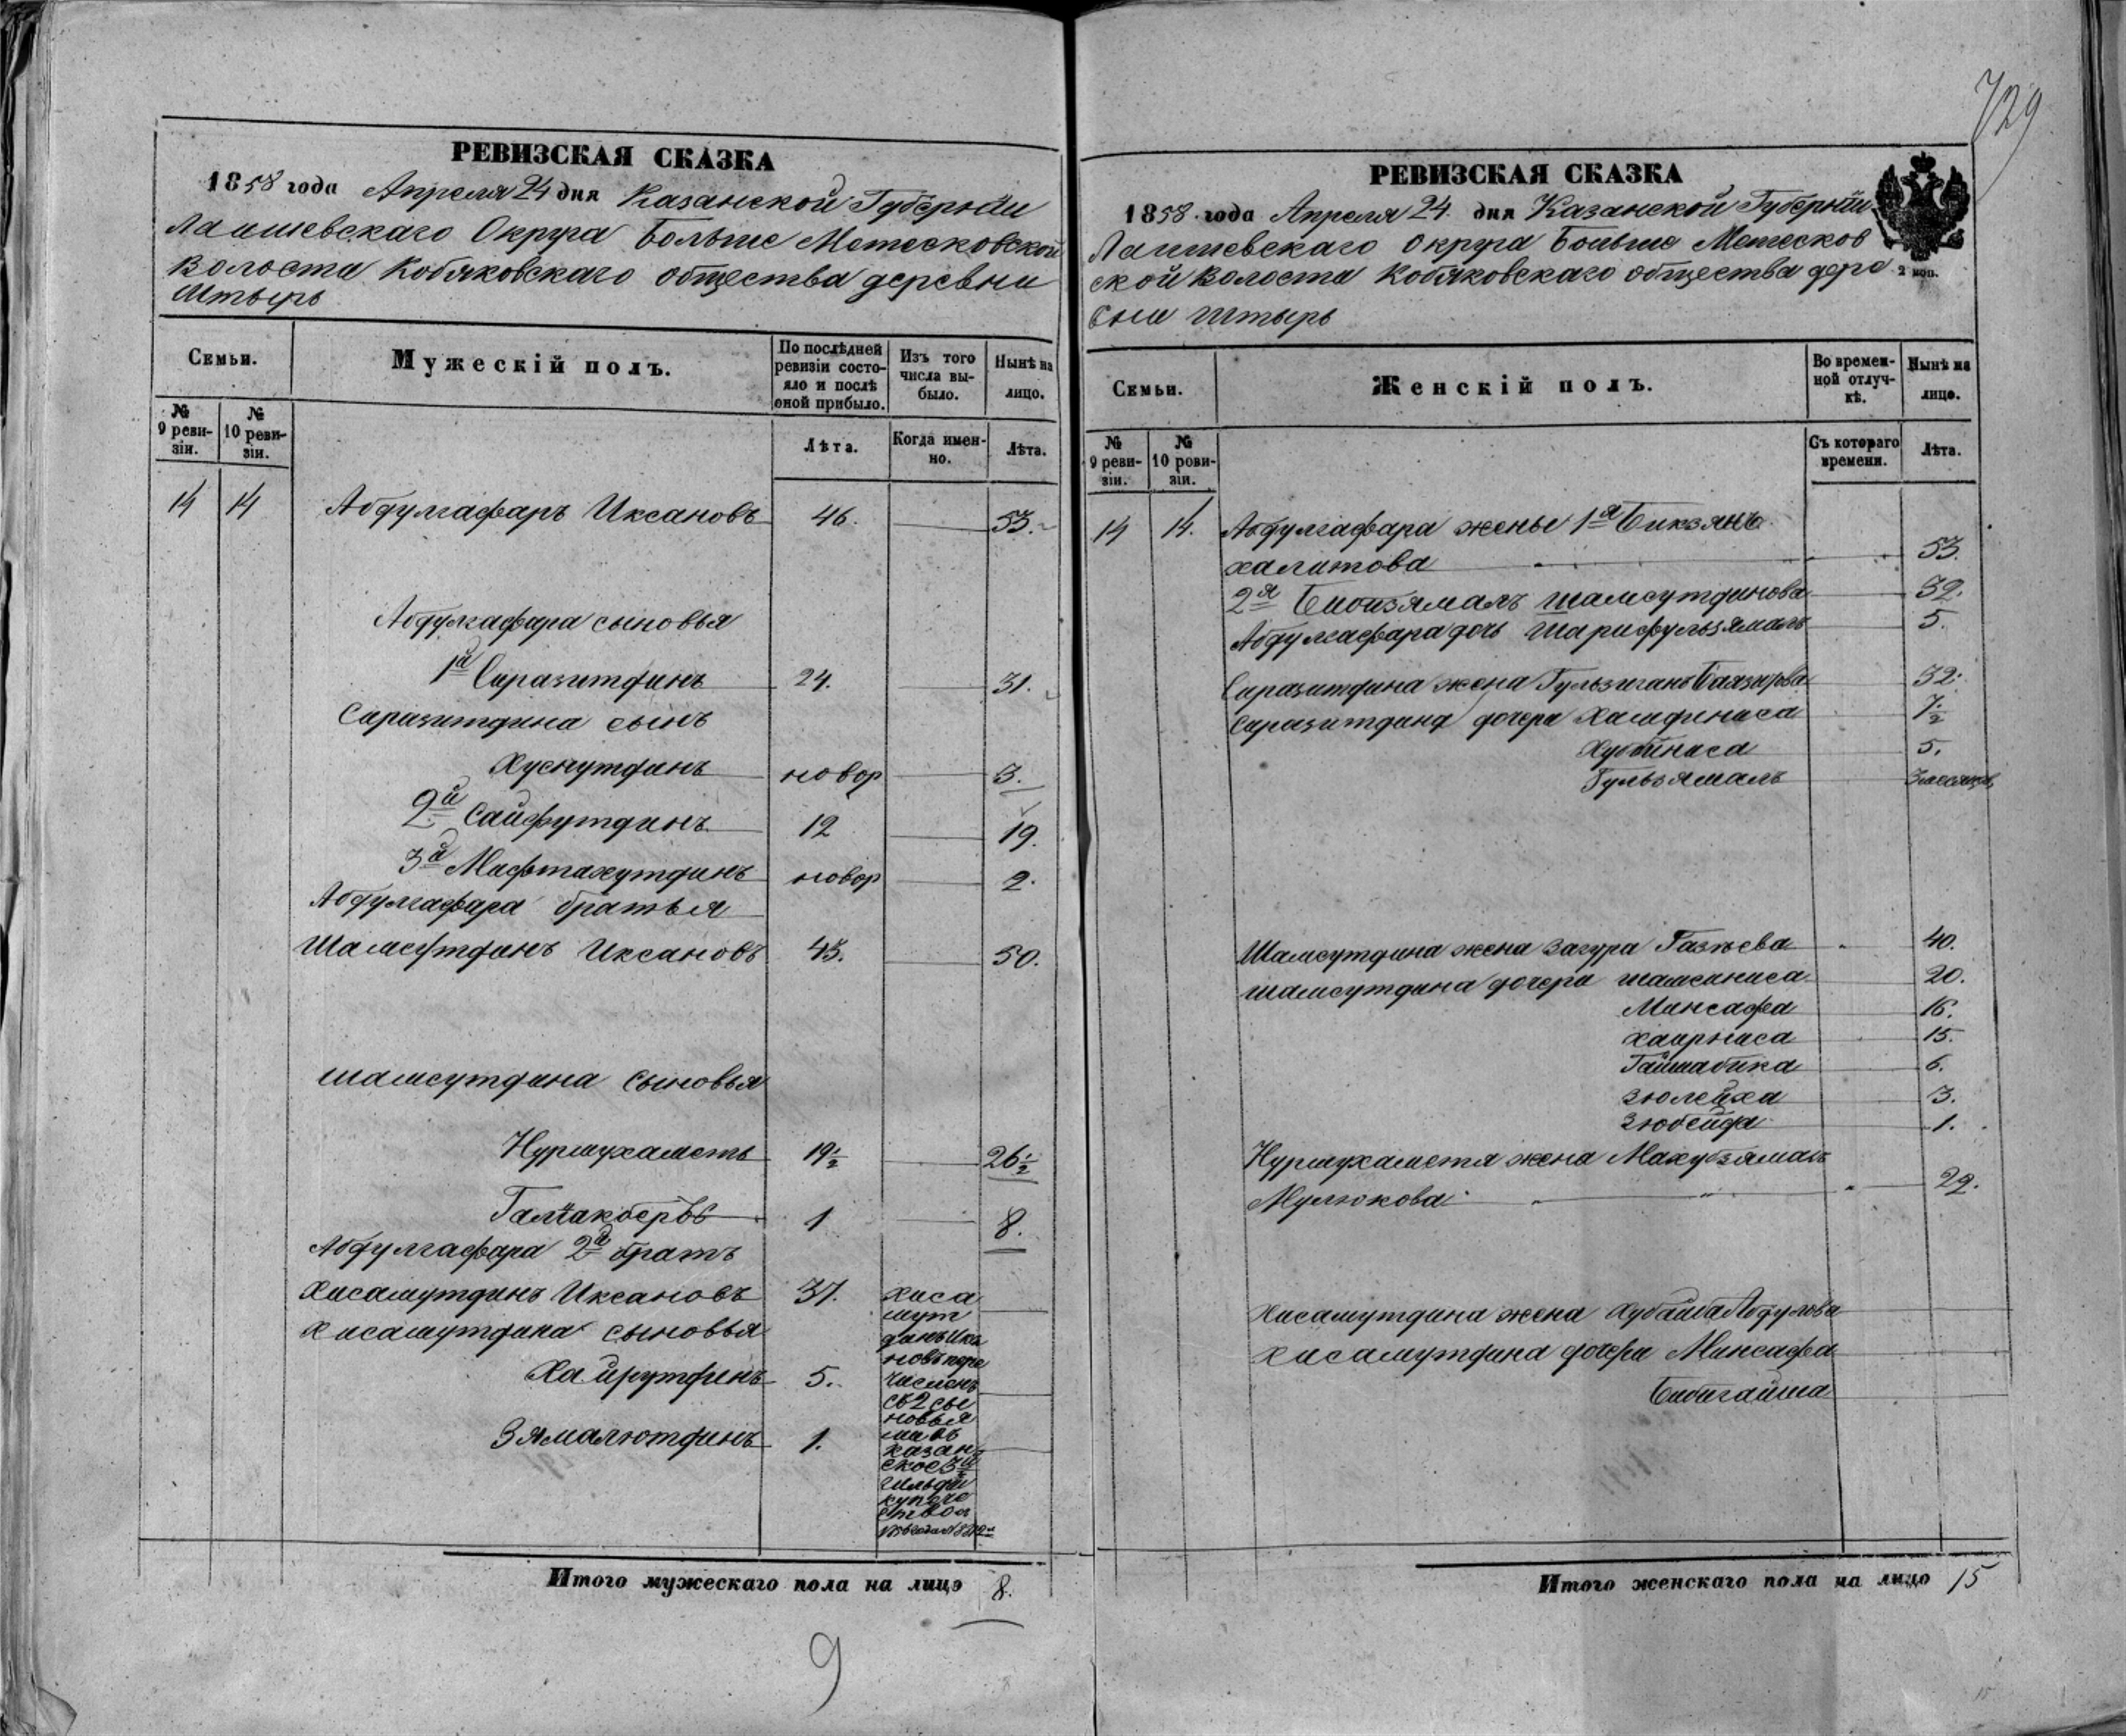 729
РЕВИЗСКАЯ СКАЗКА
1858 года Апреля 24 дня Казанской Губерніи
Лаишевскаго Округа Больше Метесковской
Волости Кобяковскаго общества деревни
Штырь
Семьи.
Мужескій полъ.
По послѣдней ревизіи состояло и послѣ оной прибыло.
Изъ того числа выбыло.
Нынѣ на лицо.
№ 9 ревизіи.
№ 10 ревизіи.
Лѣта.
Когда именно.
Лѣта.
14 14 Абдулгафаръ Иксановъ 46. 53.
Абдулгафара сыновья
1й Сиразитдинъ 24. 31.
Сиразитдина сынъ
Хуснутдинъ новор 3.
2й Сайфутдинъ 12 19.
3й Мифтахутдинъ новор 2.
Абдулгафара братья
Шамсутдинъ Иксановъ 43. 50.
Шамсутдина сыновья
Нурмухаметъ 19½ 26½
1 8.
Абдулгафара 2й братъ
Хисамутдинъ Иксановъ 37.
Хисамутдина сыновья
Хайрутдинъ 5.
Зямалютдинъ 1.
хиса
мут
динъ Икса
новъ пере
численъ
съ 2 сы
новья
ми въ
казан
ское 3й
гильдіи
купече
ство
Итого мужескаго пола на лицо 8.
9
РЕВИЗСКАЯ СКАЗКА
1858 года Апреля 24 дня Казанской Губерніи
Лаишевскаго Округа Больше Метесков
ской Волости Кобяковскаго общества дере
вни Штырь
2 коп.
Семьи.
Женскій полъ.
Во временной отлучкѣ.
Нынѣ на лицо.
№ 9 ревизіи.
№ 10 ревизіи.
Съ котораго времени.
Лѣта.
14 14. Абдулгафара жены 1я Бикзянъ
Халитова 53.
2я Бибизямалъ Шамсутдинова 32.
Абдулгафара дочь Шарифульзямалъ 5.
Сиразитдина жена 32.
Сиразитдина дочери 7½
5.
Гульзямалъ 3 месяцовъ
Шамсутдина жена Загура Газѣева 40.
Шамсутдина дочери Шамсиниса 20.
Минсафа 16.
Хаирниса 15.
Гайшабика 6.
Зюлейха 3.
Зюбейда 1.
Нурмухаметя жена Махубзямалъ
Мулюкова 22.
Хисамутдина жена Хубайба Абдулова
Хисамутдина дочери Минсафа
Бибигайша
Итого женскаго пола на лицо 15